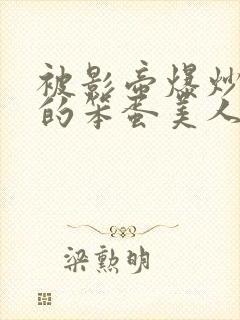 被影帝爆炒
的笨蛋美人
梁勲明